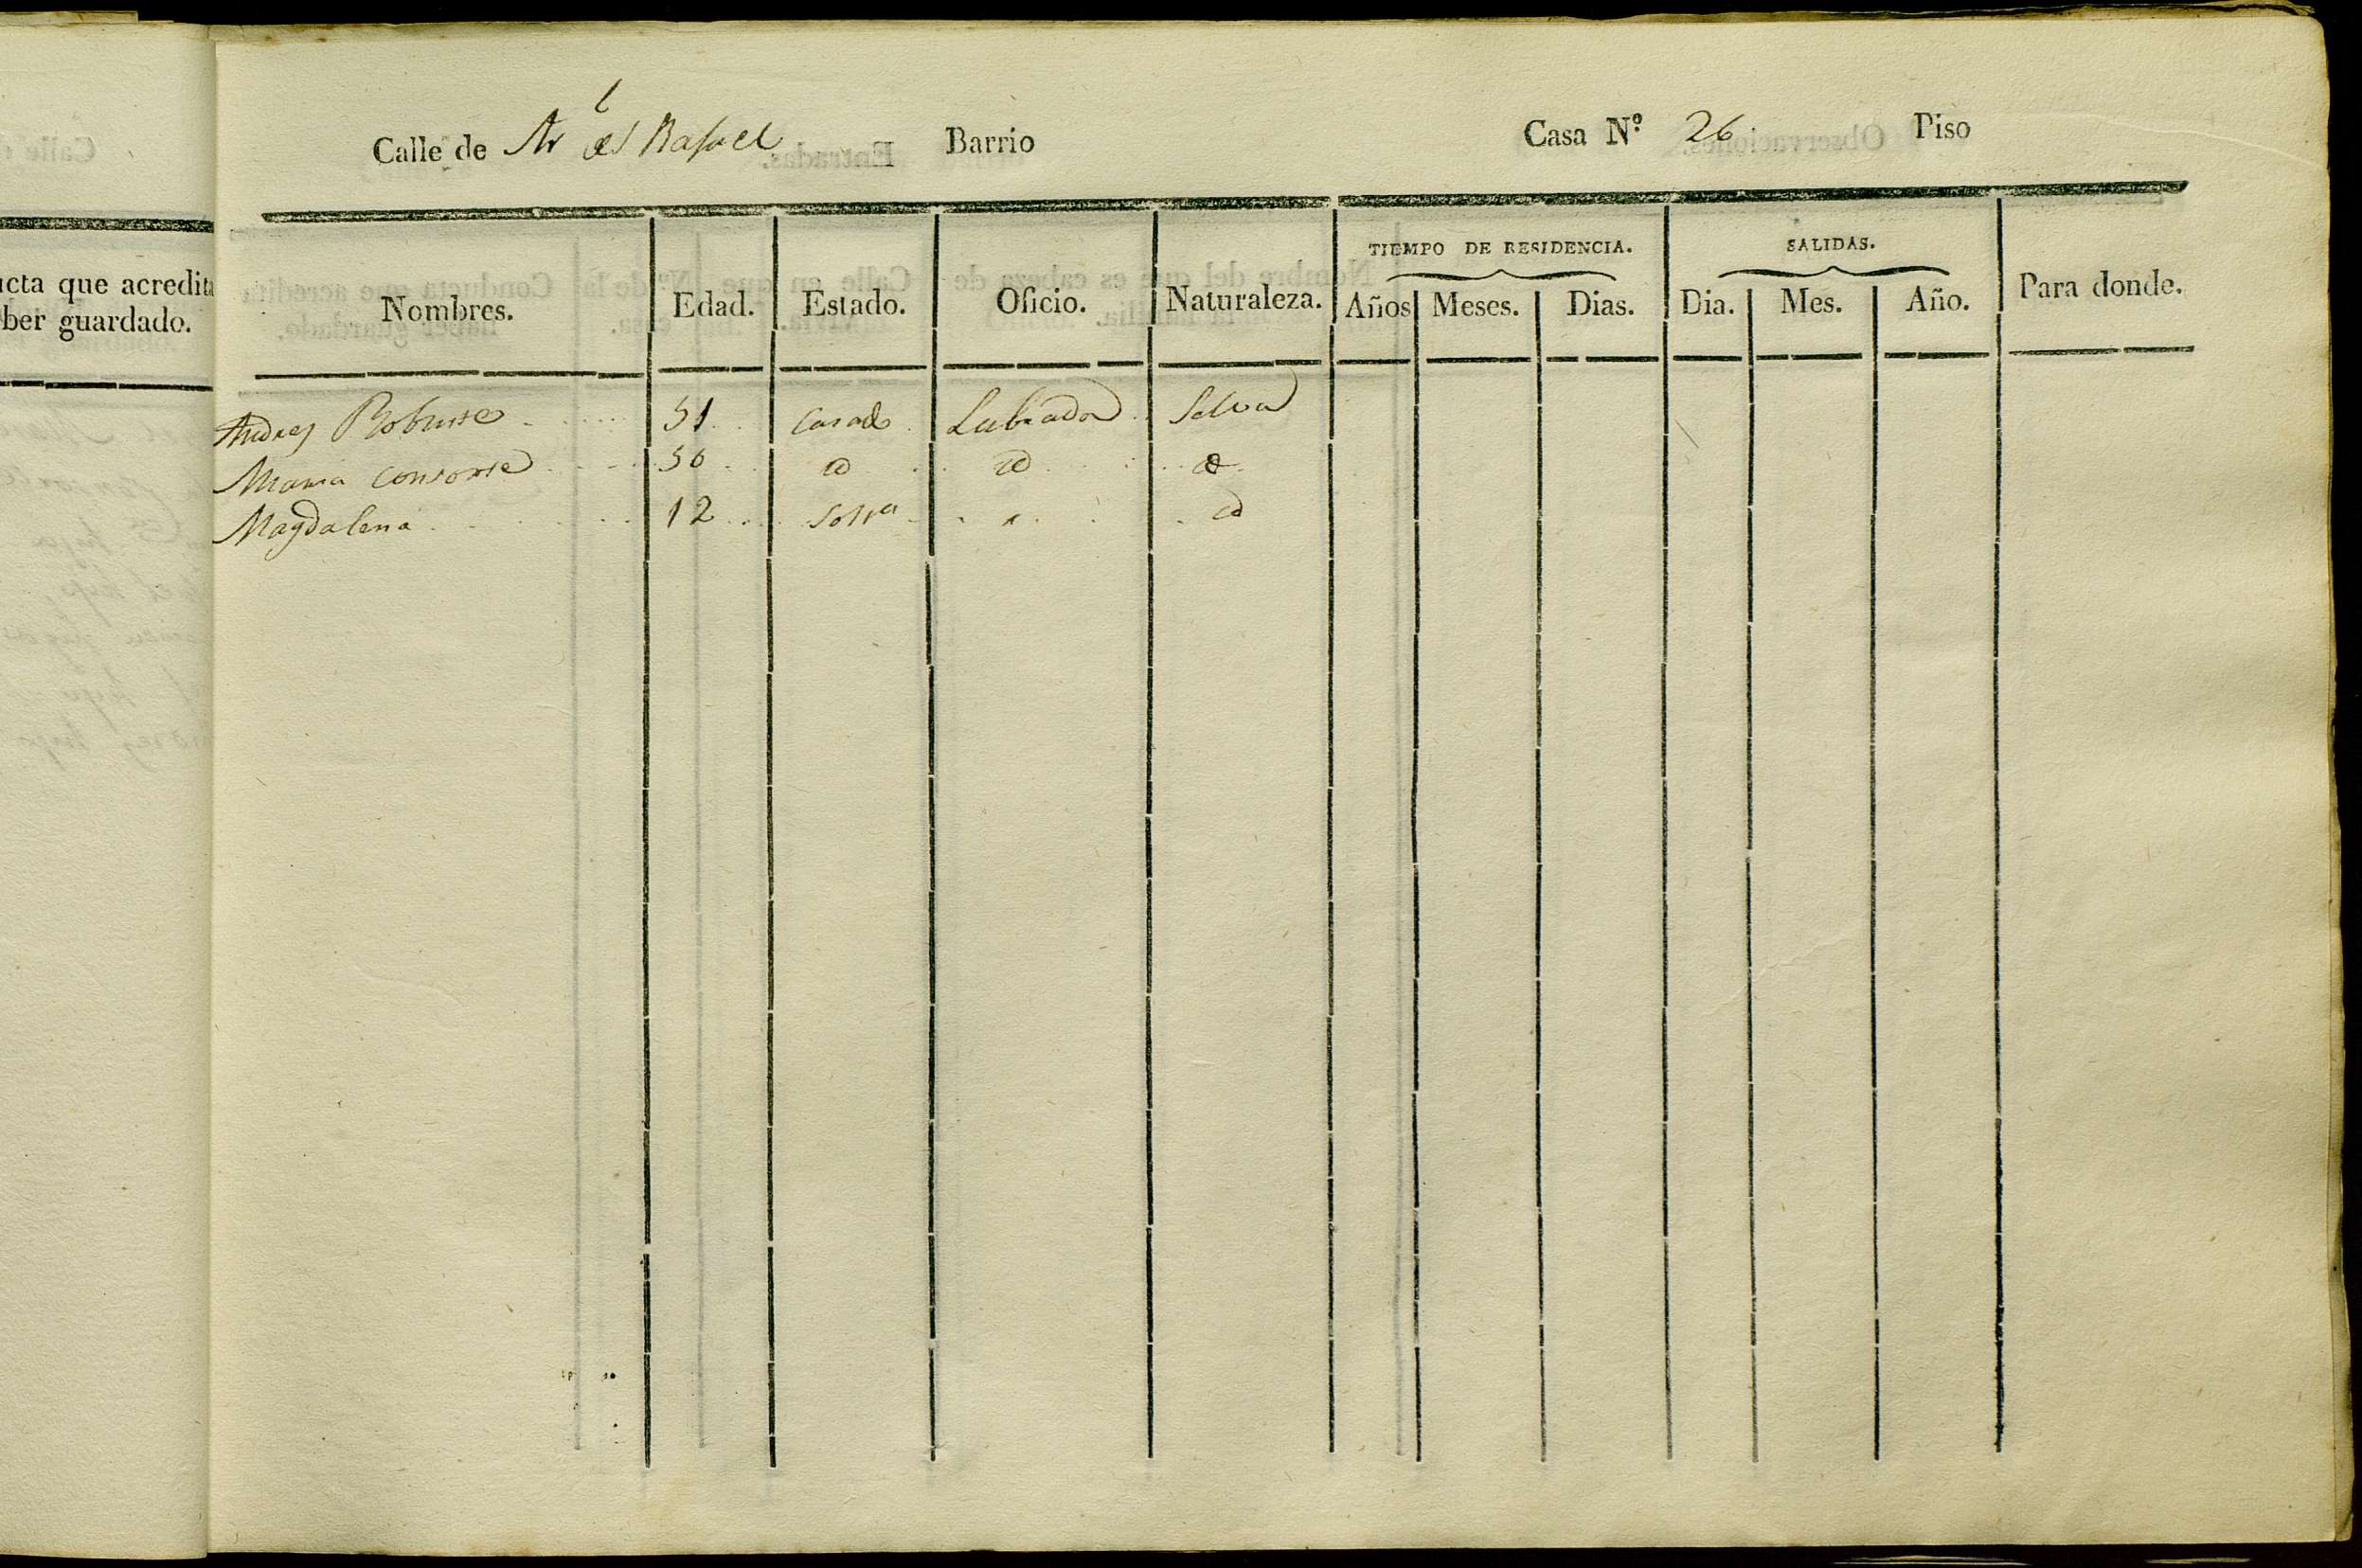 Calle de Arl Sn Rafael Barrio Casa N.º 26. Piso
TIEMPO DE RESIDENCIA. SALIDAS.
ucta que acredita
ber guardado.
Nombres. Edad. Estado. Oficio. Naturaleza. Años Meses. Dias. Dia. Mes. Año. Para donde.
Andres Robuste 51 Casado Labrador Selva
Maria Consorte 50 id id id
Magdalena 12 Soltra " id